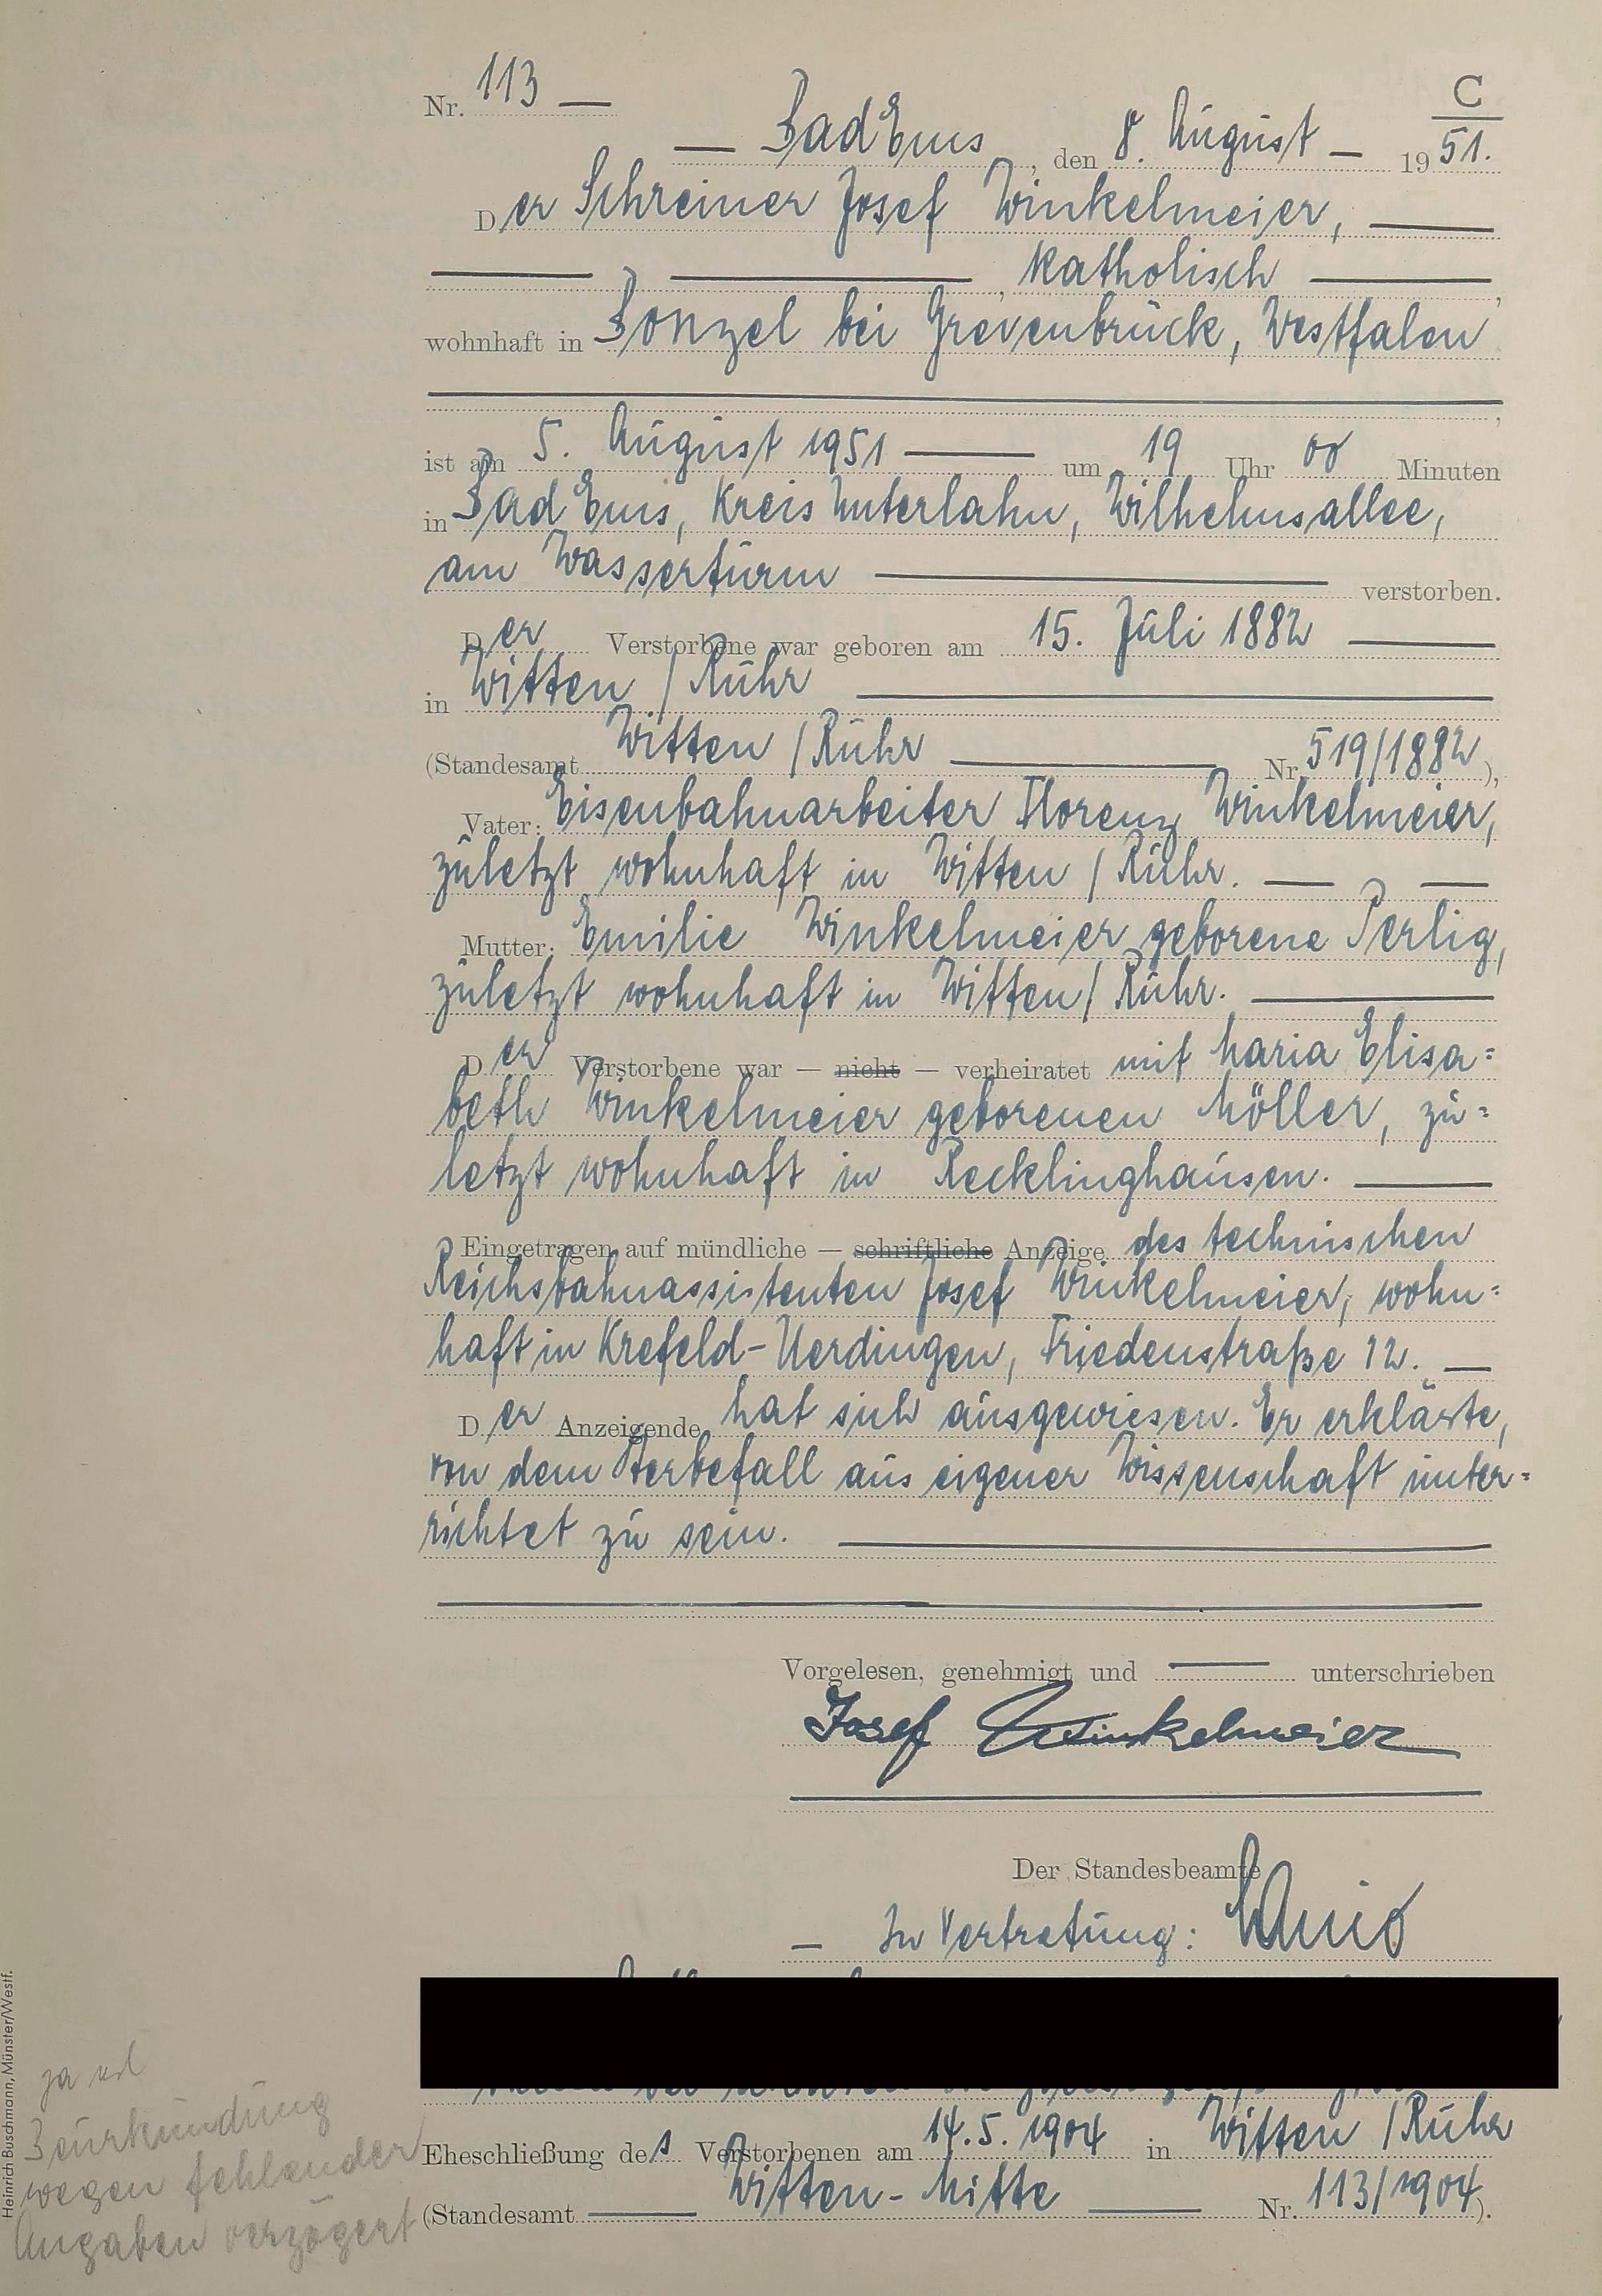 Nr. 113 —
C
— Bad Ems, den 8. August — 19 51.
Der Schreiner Josef Winkelmeier,
, katholisch ,
wohnhaft in Bonzel bei Grevenbrück, Westfalen
,
ist am 5. August 1951 um 19 Uhr 00 Minuten
in Bad Ems, Kreis Unterlahn, Wilhelmsallee,
am Wasserturm verstorben.
Der Verstorbene war geboren am 15. Juli 1882
in Witten / Ruhr
(Standesamt Witten / Ruhr Nr. 519/1882),
Vater: Eisenbahnarbeiter Florenz Winkelmeier,
zuletzt wohnhaft in Witten / Ruhr. —
Mutter: Emilie Winkelmeier geborene Perlig,
zuletzt wohnhaft in Witten / Ruhr.
Der Verstorbene war — nicht — verheiratet mit Maria Elisa=
beth Winkelmeier geborenen Möller, zu=
letzt wohnhaft in Recklinghausen.
Eingetragen auf mündliche — schriftliche Anzeige des technischen
Reichsbahnassistenten Josef Winkelmeier, wohn=
haft in Krefeld-Uerdingen, Friedenstraße 12. —
Der Anzeigende hat sich ausgewiesen. Er erklärte,
von dem Sterbefall aus eigener Wissenschaft unter=
richtet zu sein.
Vorgelesen, genehmigt und unterschrieben
Josef Winkelmeier
Der Standesbeamte
— In Vertretung:
Eheschließung des Verstorbenen am 14.5.1904 in Witten / Ruhr
(Standesamt Witten-Mitte Nr. 113/1904).
Beurkundung
wegen fehlender
Angaben verzögert
Heinrich Buschmann, Münster/Westf.